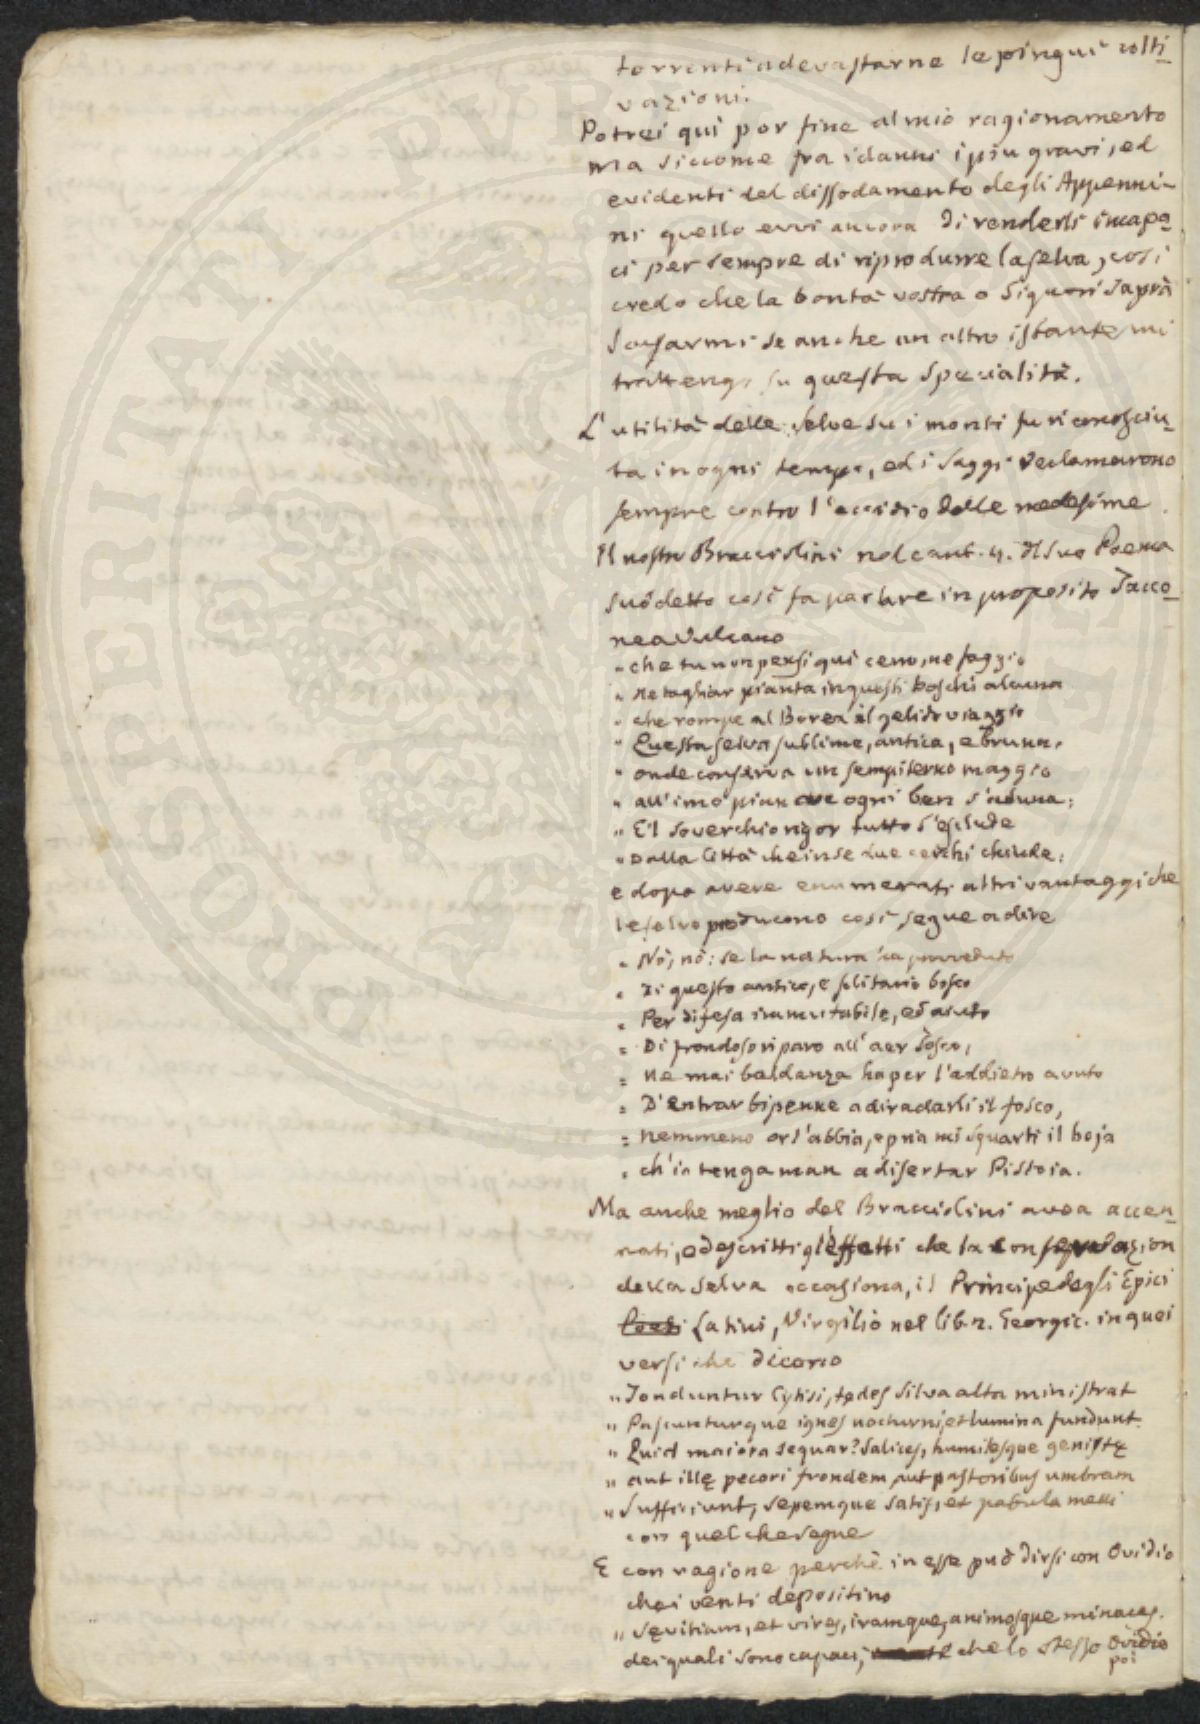 torrenti a devastarne le pingui colti-
vazioni.
Potrei qui por fine al mio ragionamento
ma siccome fra i danni i più gravi, ed
evidenti del dissodamento degli Appenni-
ni quello evvi ancora di renderli incapa-
ci per sempre di riprodurre la selva, così
credo che la bontà vostra o Signori saprà
scusarmi se anche un altro istante mi
trattengo su questa specialità.
L'utilità delle selve su i monti fu riconosciu-
ta in ogni tempo, ed i saggi reclamarono
sempre contro l'eccidio delle medesime.
Il nostro Bracciolini nel cant. 4. del suo Poema
sud detto così fa parlare in proposito Tacco-
ne a Vulcano
" che tu non pensi qui cerro, ne faggio
" ne tagliar pianta in questi boschi alcuna
" che rompe al Borea il gelido viaggio
" Questa selva sublime, antica, e bruna,
" onde conserva un sempiterno maggio
" all'imo pian ove ogni ben s'aduna;
" E'l soverchio rigor tutto s'esclude
" Dalla Città che in se due cerchi chiude;
e dopo avere enumerati altri vantaggi che
le selve producono così segue a dire
" Nò, nò: se la natura ha proveduto
" Di questo antico, e solitario bosco
" Per difesa immutabile, ed aiuto
" Di frondoso riparo all'aer Tosco,
" Ne mai baldanza ha per l'addietro avuto
" D'entrar bipenne a diradarli il fosco,
" Nemmeno or l'abbia, e pria mi squarti il boja
" ch'io tenga man a disertar Pistoia.
Ma anche meglio del Bracciolini avea accen-
nati, e descritti gl'effetti che la conservazion
della selva occasiona, il Principe degli Epici
Poeti Latini, Virgilio nel lib. 2. Georgic. in quei
versi che dicono
" Tonduntur Cytisi, tędes silva alta ministrat
" Pascunturque ignes nocturni, et lumina fundunt.
" Quid maiora sequar? Salices, humilesque genistę
" aut illę pecori frondem, aut pastoribus umbram
" Sufficiunt, sepemque satis, et pabula melli
con quel che segue
E con ragione perchè in esse può dirsi con Ovidio
che i venti depositino
" Sęvitiam, et vires, iramque, animosque minaces.
dei quali sono capaci, che lo stesso Ovidio
poi